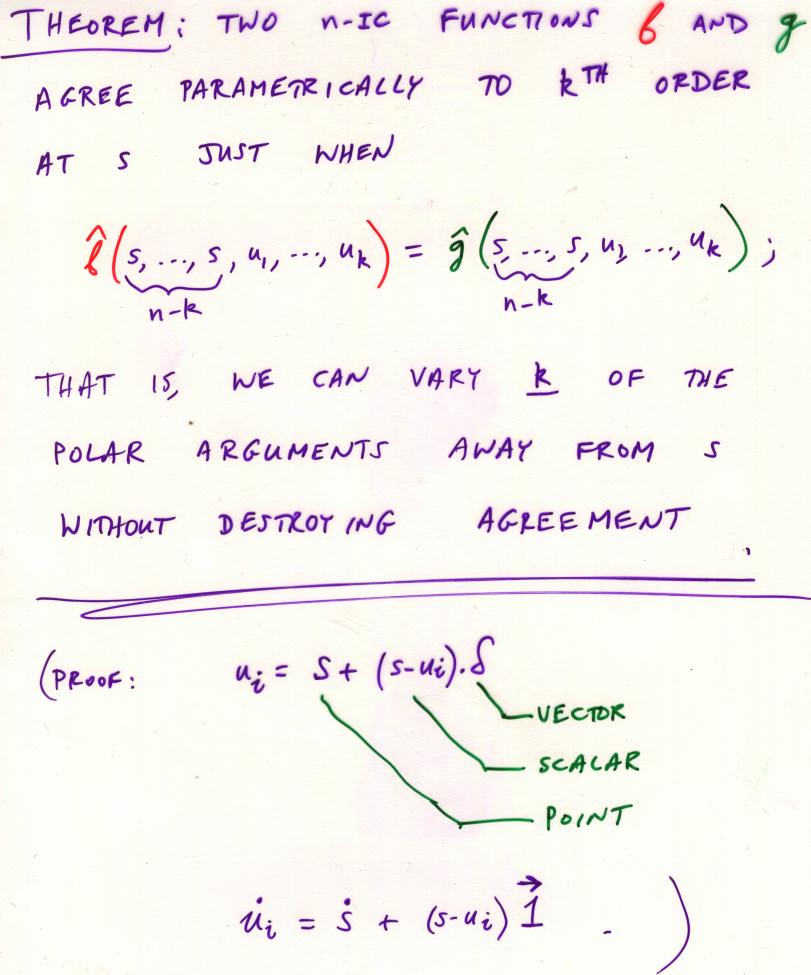 THEOREM: TWO n-IC FUNCTIONS f AND g
AGREE PARAMETRICALLY TO kTH ORDER
AT s JUST WHEN
f̂(s, ..., s, u₁, ..., uₖ) = ĝ(s, ..., s, u₁, ..., uₖ);
n-k n-k
THAT IS, WE CAN VARY k OF THE
POLAR ARGUMENTS AWAY FROM s
WITHOUT DESTROYING AGREEMENT.
(PROOF: uᵢ = s + (s-uᵢ).δ
VECTOR
SCALAR
POINT
u̇ᵢ = ṡ + (s-uᵢ) 1⃗ . )